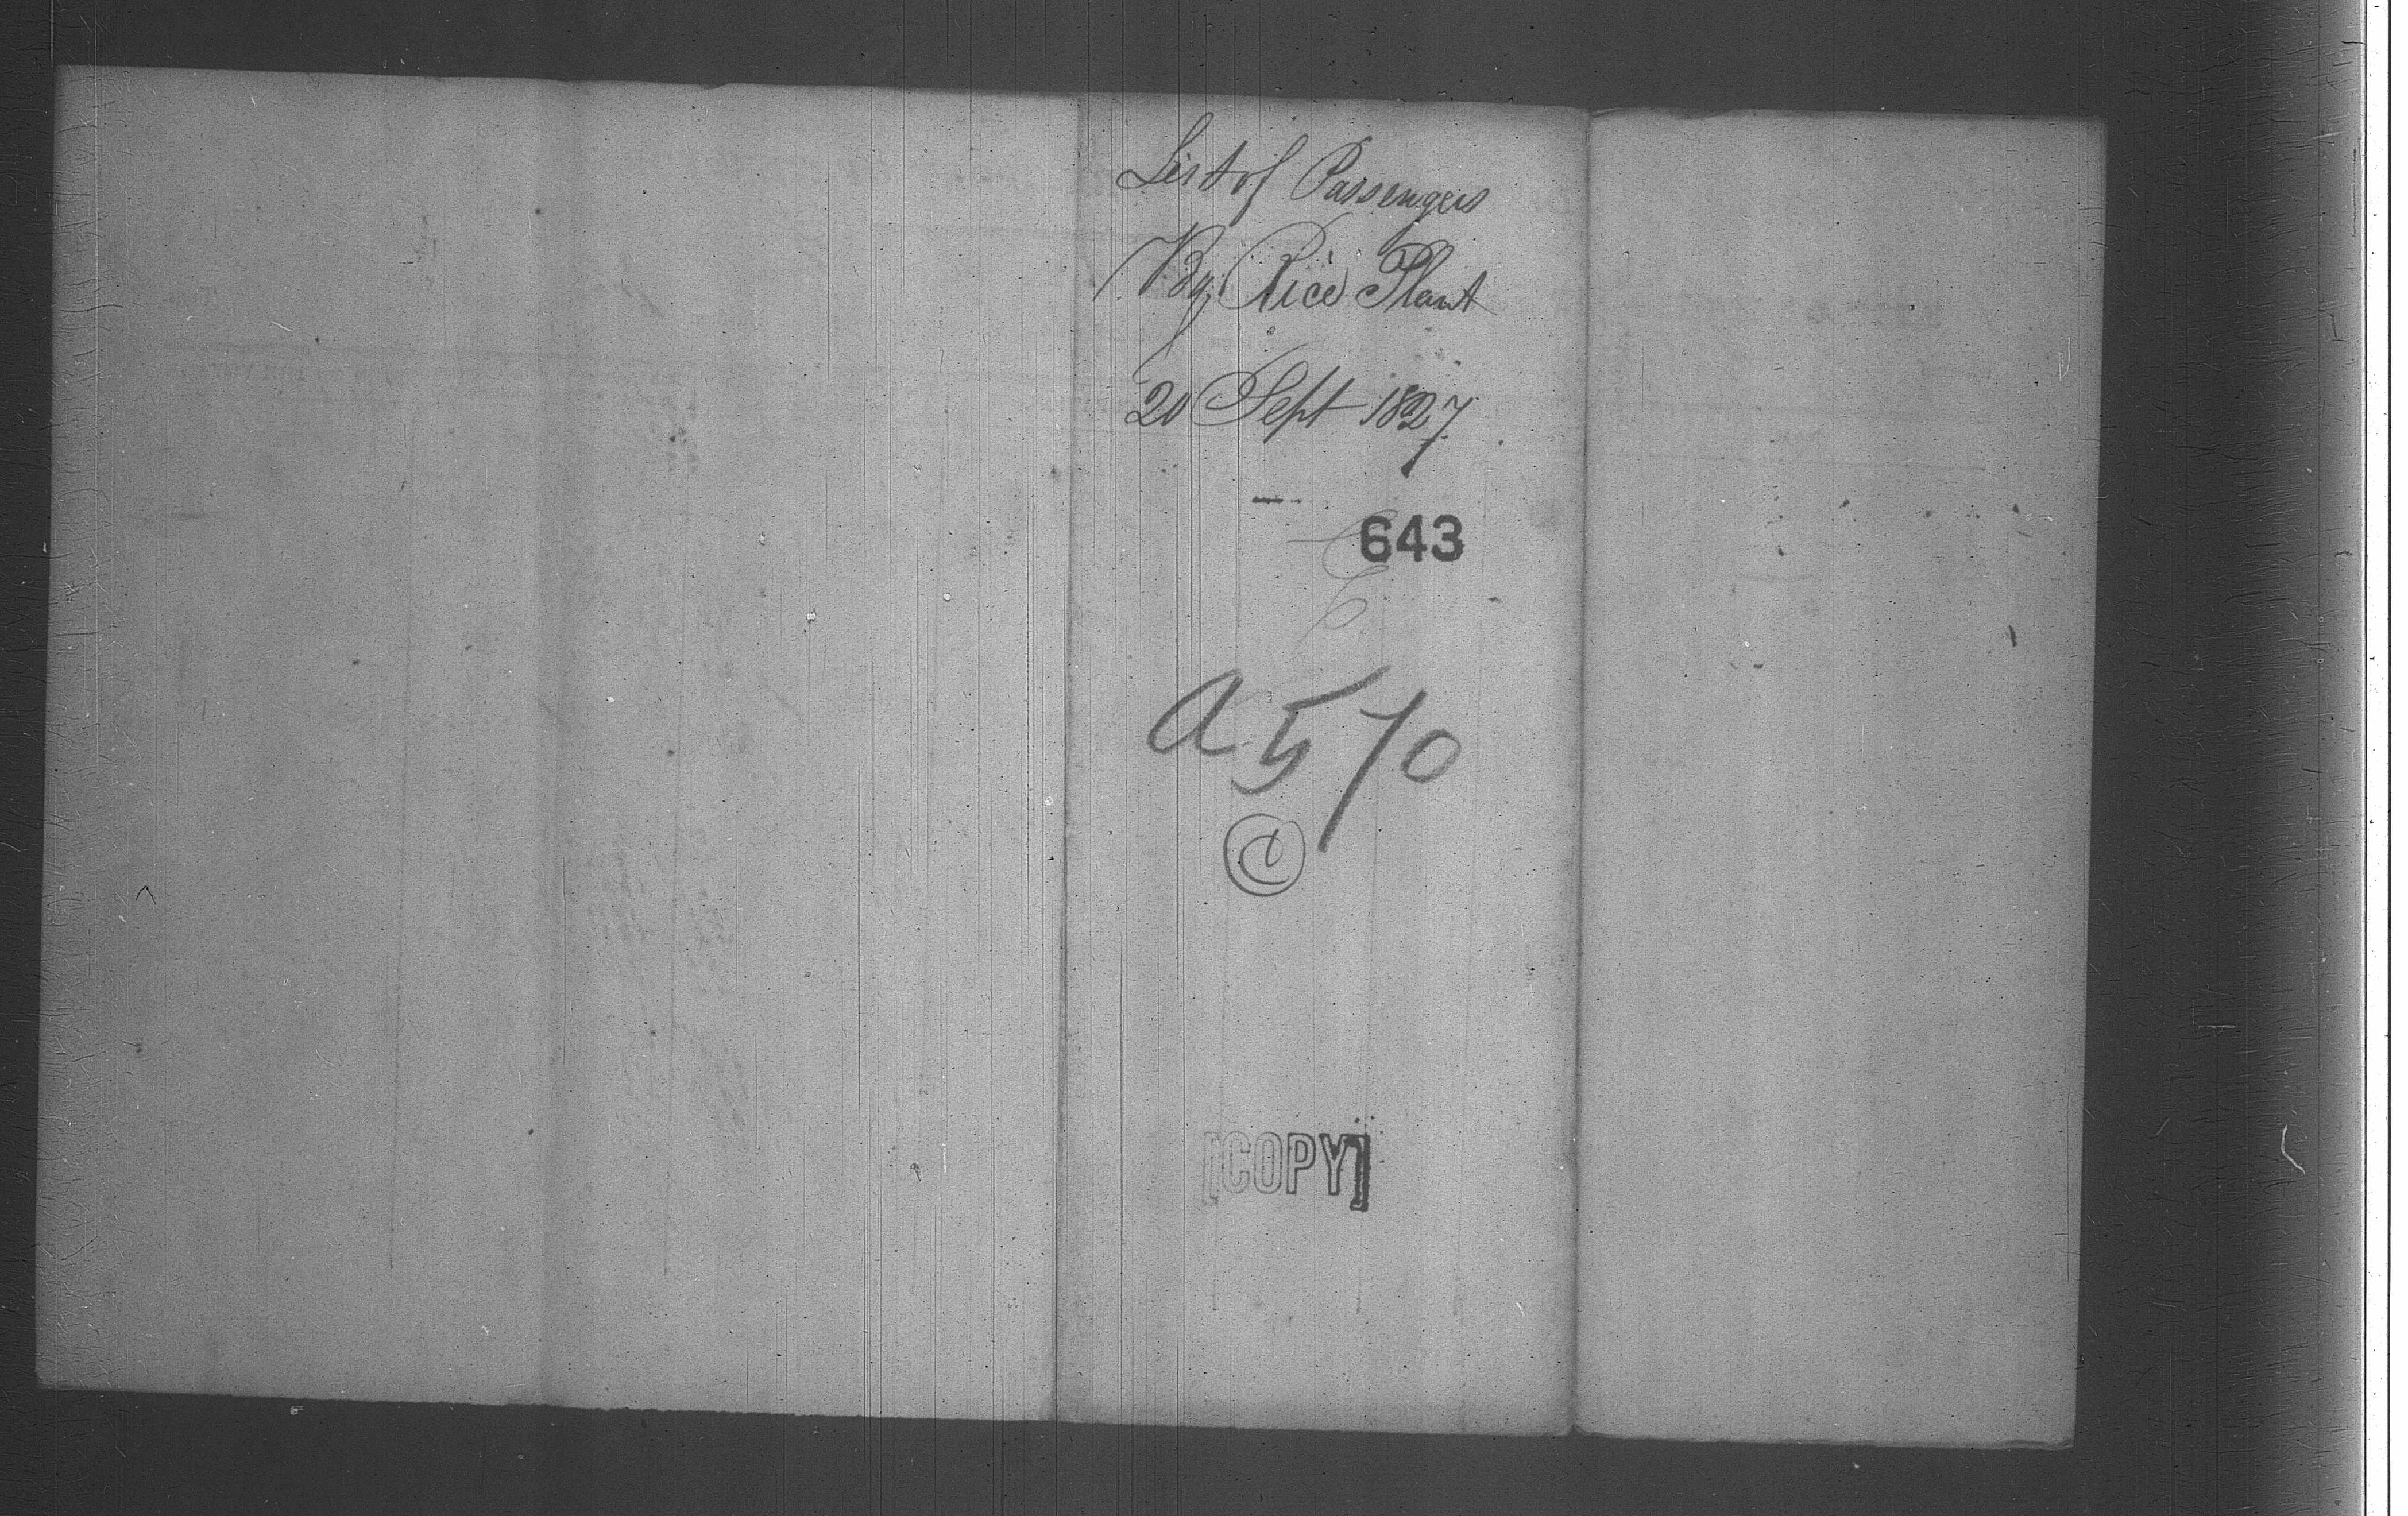 List of Passengers
By Rice Plant
20 Sept 1827
643
A 570
C
[COPY]